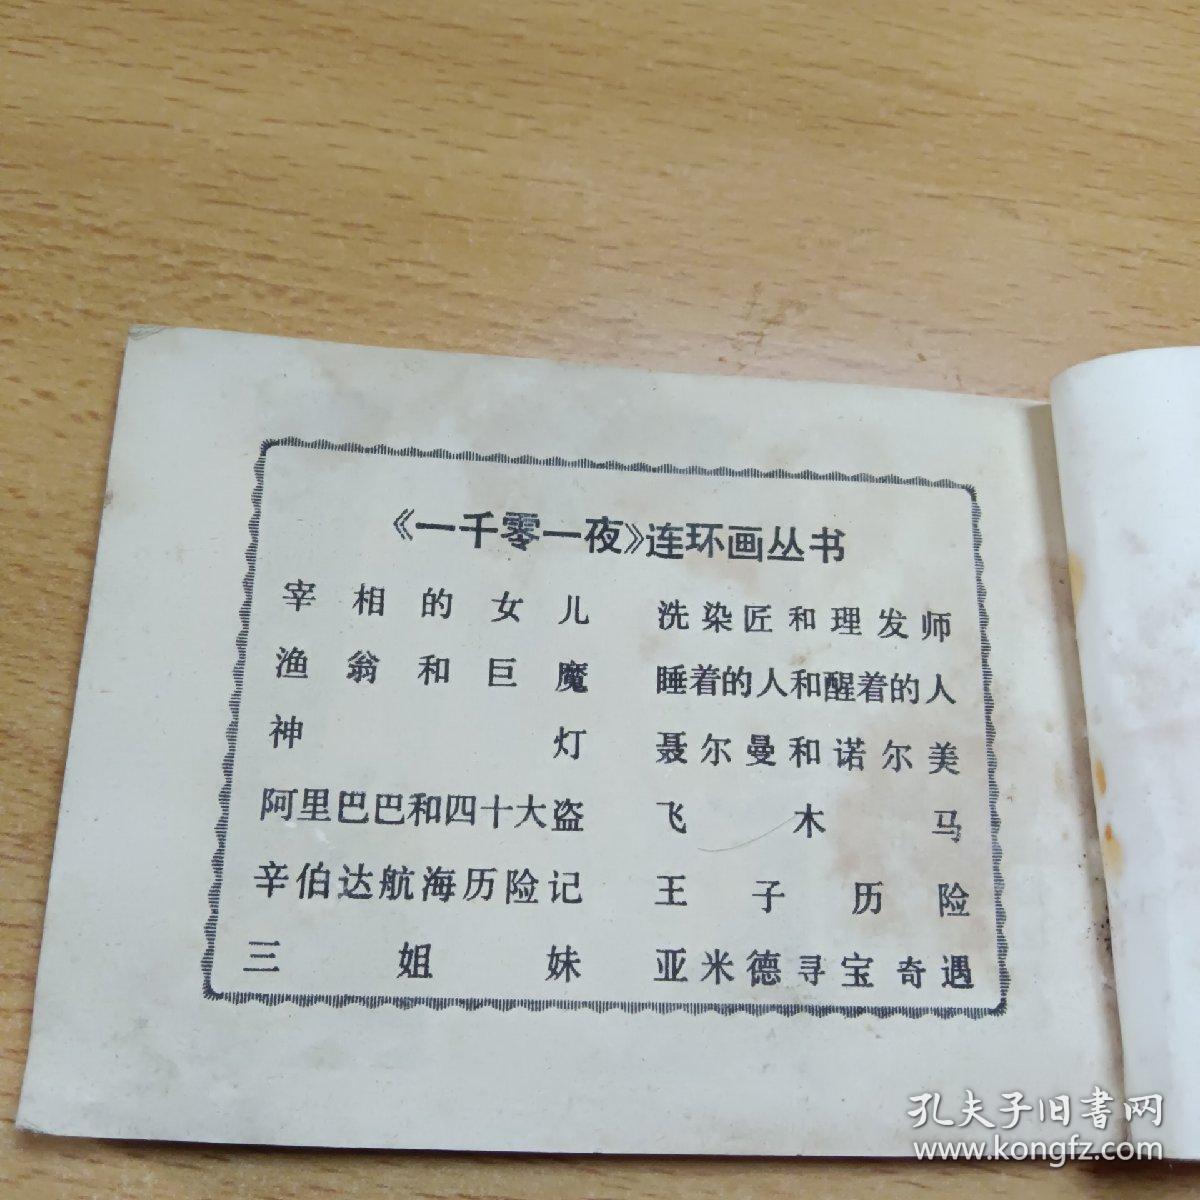 《一千零一夜》连环画丛书
宰相的女儿
渔翁和巨魔
神灯
阿里巴巴和四十大盗
辛伯达航海历险记
三姐妹
洗染匠和理发师
睡着的人和醒着的人
聂尔曼和诺尔美
飞木马
王子历险
亚米德寻宝奇遇
孔夫子旧書网
www.kongfz.com